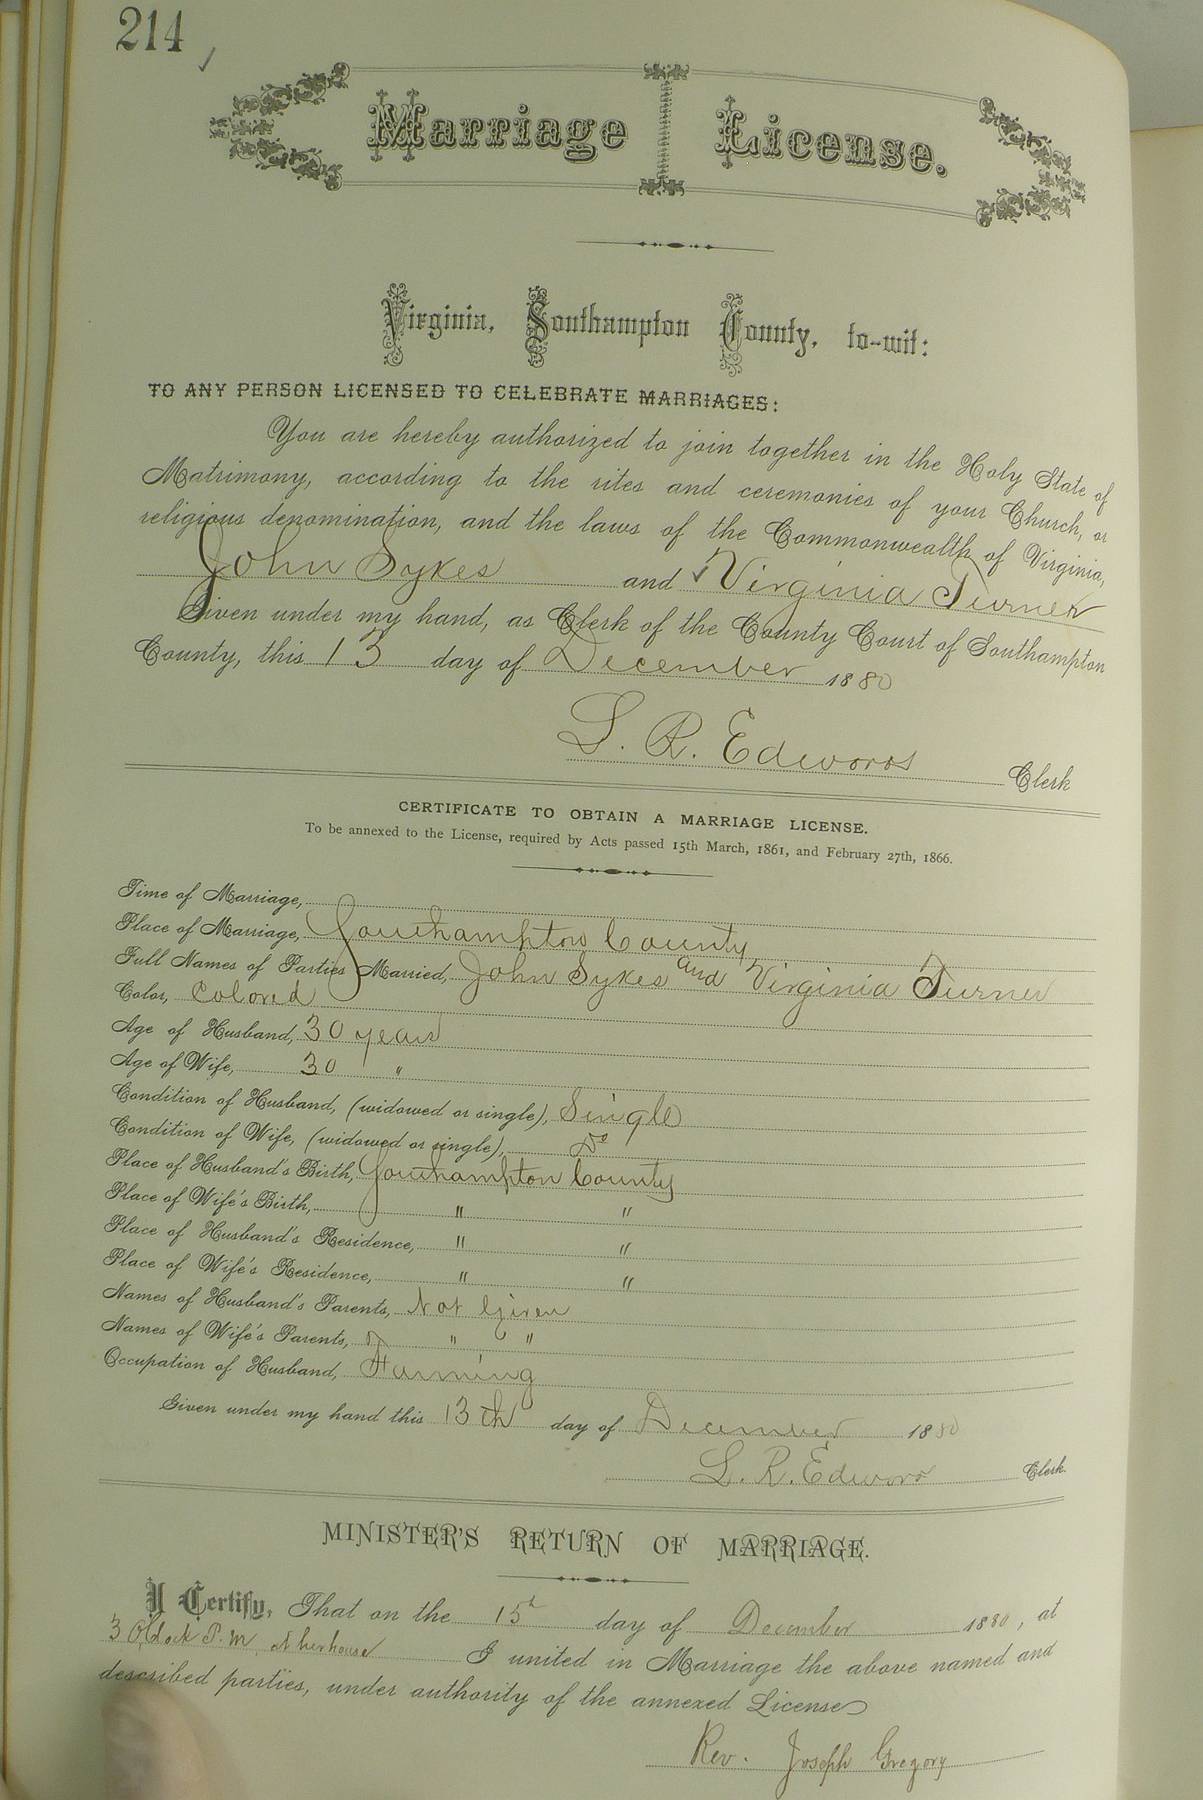 214
Marriage License.
Virginia, Southampton County, to-wit:
TO ANY PERSON LICENSED TO CELEBRATE MARRIAGES:
You are hereby authorized to join together in the Holy State of
Matrimony, according to the rites and ceremonies of your Church, or
religious denomination, and the laws of the Commonwealth of Virginia,
John Sykes and Virginia Turner
Given under my hand, as Clerk of the County Court of Southampton
County, this 13 day of December 1880
L. R. Edwards Clerk
CERTIFICATE TO OBTAIN A MARRIAGE LICENSE.
To be annexed to the License, required by Acts passed 15th March, 1861, and February 27th, 1866.
Time of Marriage,
Place of Marriage, Southampton County
Full Names of Parties Married, John Sykes and Virginia Turner
Color, Colored
Age of Husband, 30 years
Age of Wife, 30 "
Condition of Husband, (widowed or single), Single
Condition of Wife, (widowed or single), Do
Place of Husband's Birth, Southampton County
Place of Wife's Birth, " "
Place of Husband's Residence, " "
Place of Wife's Residence, " "
Names of Husband's Parents, Not Given
Names of Wife's Parents, " "
Occupation of Husband, Farming
Given under my hand this 13th day of December 1880
L. R. Edwards Clerk.
MINISTER'S RETURN OF MARRIAGE.
I Certify, That on the 15th day of December 1880, at
3 Oclock P.M. at her house I united in Marriage the above named and
described parties, under authority of the annexed License
Rev. Joseph Gregory